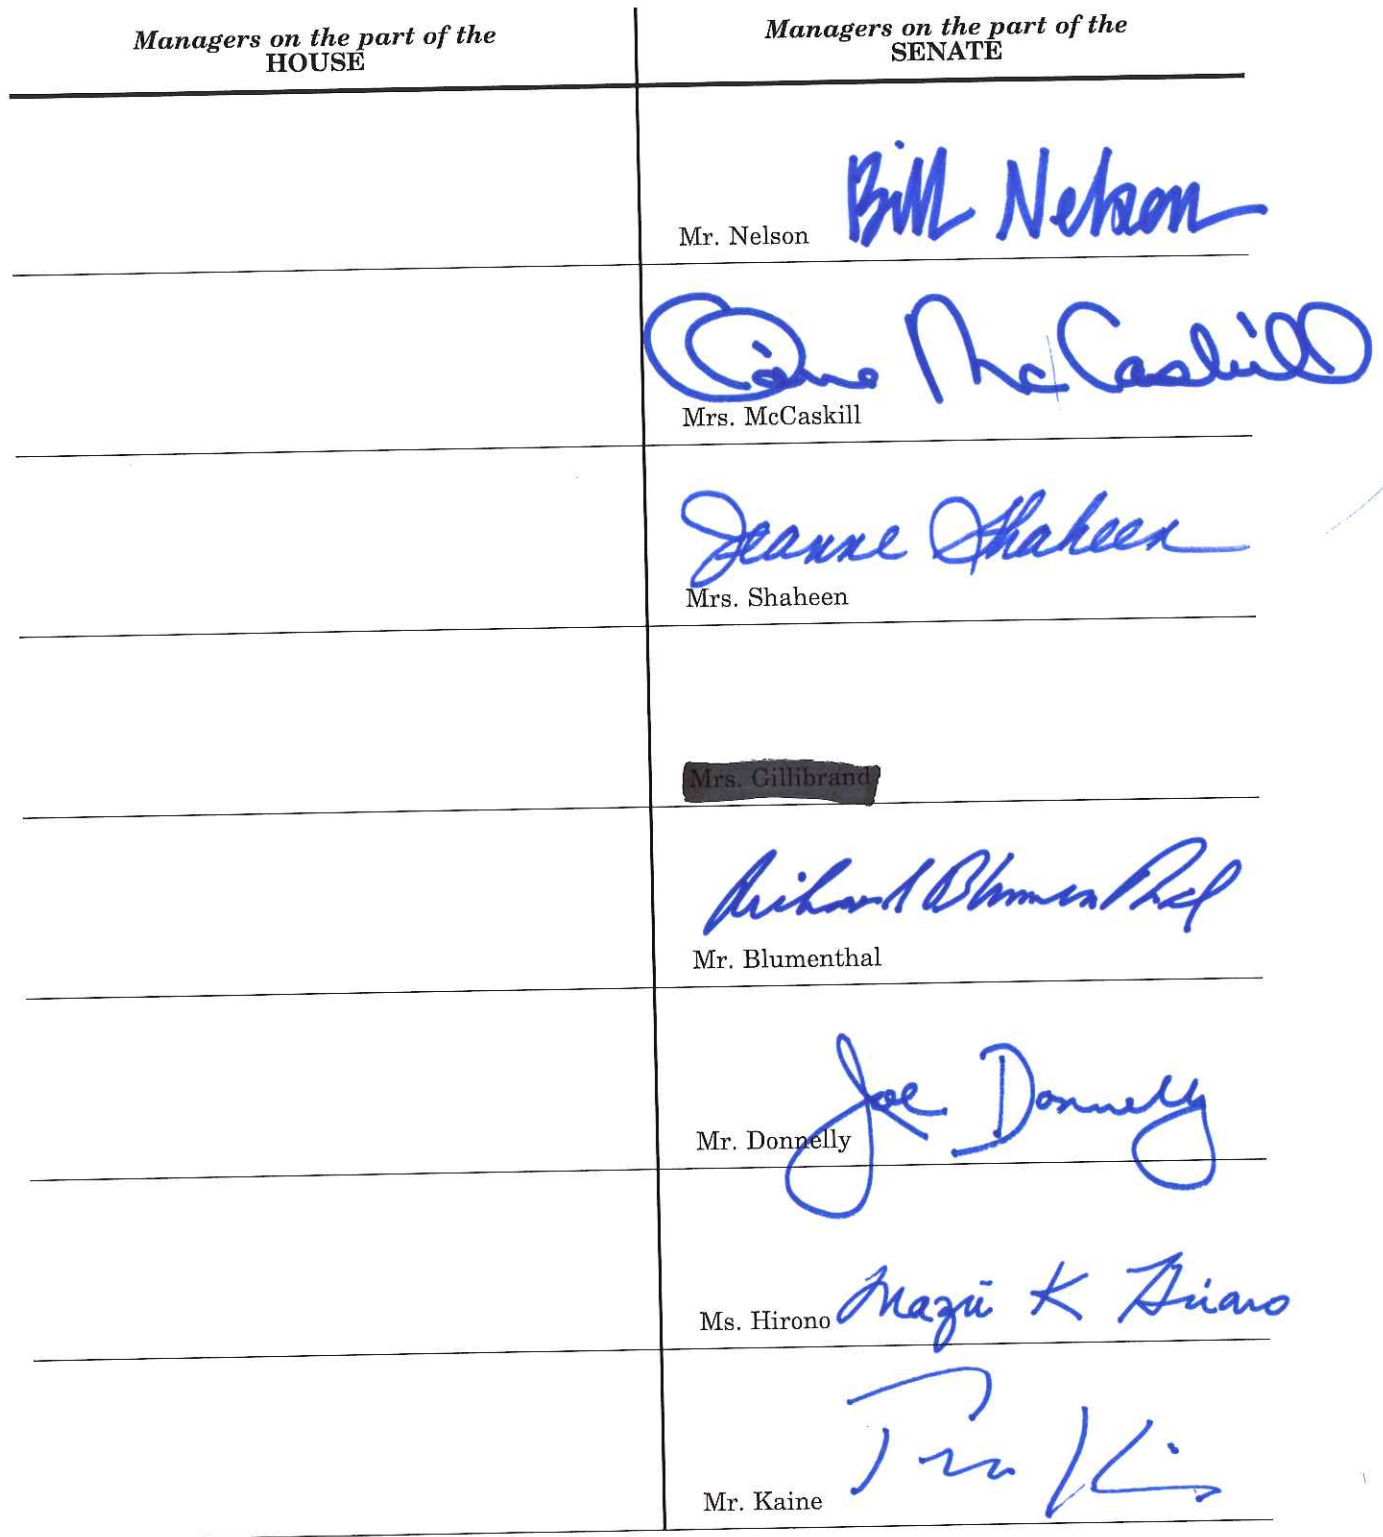 Managers on the part of the
HOUSE
Managers on the part of the
SENATE
Bill Nelson
Mr. Nelson
Claire McCaskill
Mrs. McCaskill
Jeanne Shaheen
Mrs. Shaheen
Mrs. Gillibrand
Richard Blumenthal
Mr. Blumenthal
Joe Donnelly
Mr. Donnelly
Mazie K Hirono
Ms. Hirono
Tim Kaine
Mr. Kaine